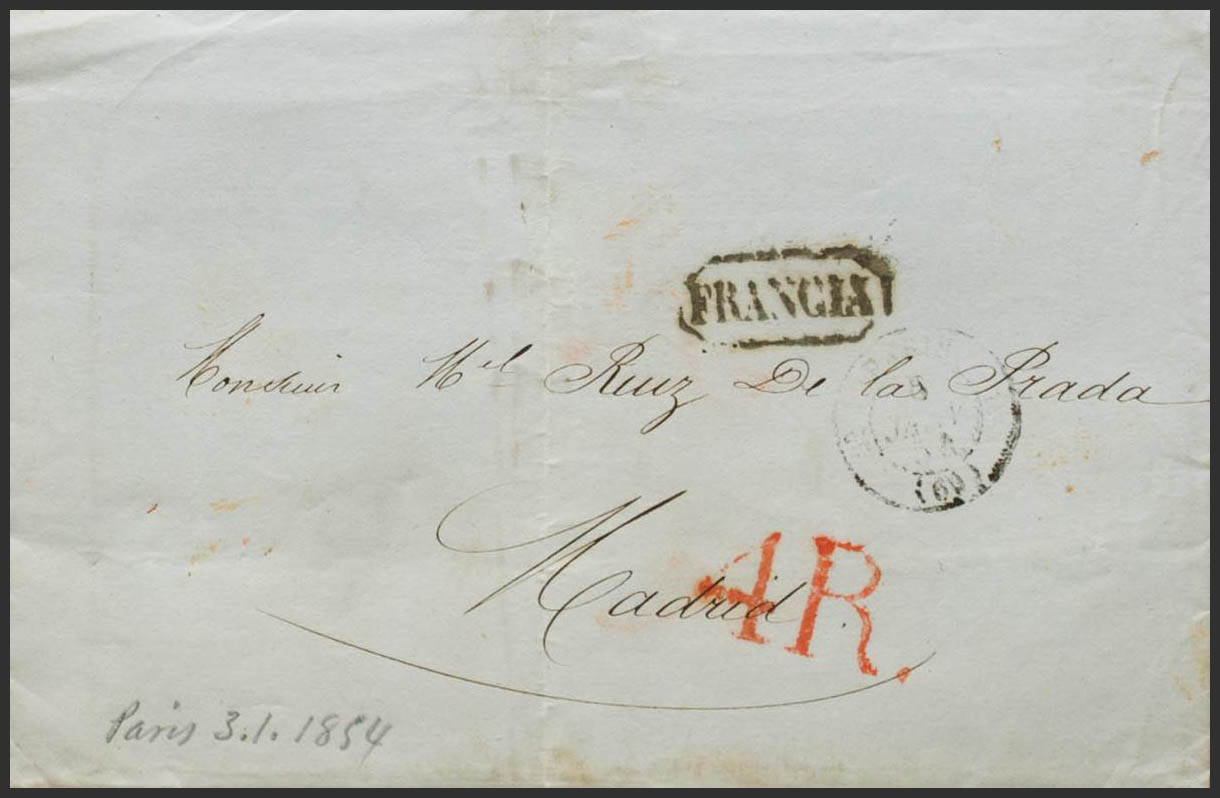 FRANCIA
Monsieur M.el Ruiz De la Prada
JANV
54
(60)
Madrid
4R.
Paris 3.1.1854